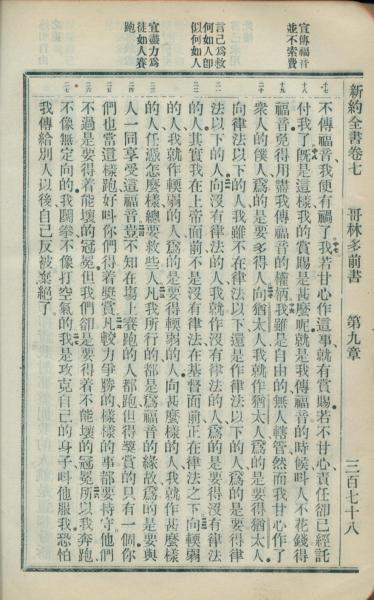 新約全書卷七　哥林多前書　第九章　三百七十八
宣傳福音並不索費
言己爲救何如人卽似何如人
宜盡力爲徒如人賽跑
不傳福音我便有禍了我若甘心作這事就有賞賜若不甘心責任卻已經託
付我了旣是這樣我的賞賜是甚麽呢就是我傳福音的時候呌人不花錢得
福音免得用盡我傳福音的權柄我雖是自由的無人轄管然而我甘心作了
衆人的僕人爲的是要多得人向猶太人我就作猶太人爲的是要得猶太人
向律法以下的人我雖不在律法以下還是作律法以下的人爲的是要得律
法以下的人向沒有律法的人我就作沒有律法的人爲的是要得沒有律法
的人其實我在上帝面前不是沒有律法在基督面前正在律法之下向輭弱
的人我就作輭弱的人爲的是要得輭弱的人向甚麽樣的人我就作甚麽樣
的人任憑怎麽樣總要救些人凡我所行的都是爲福音的緣故爲的是要與
人一同享受這福音豈不知在塲上賽跑的人都跑但得獎賞的只有一個你
們也當這樣跑好呌你們得着獎賞凡較力爭勝的樣樣的事都要持守他們
不過是要得着能壞的冠冕但我們卻是要得着不能壞的冠冕所以我奔跑
不像無定向的我鬬拳不像打空氣的我是攻克自己的身子呌他服我恐怕
我傳給別人以後自己反被棄絕了